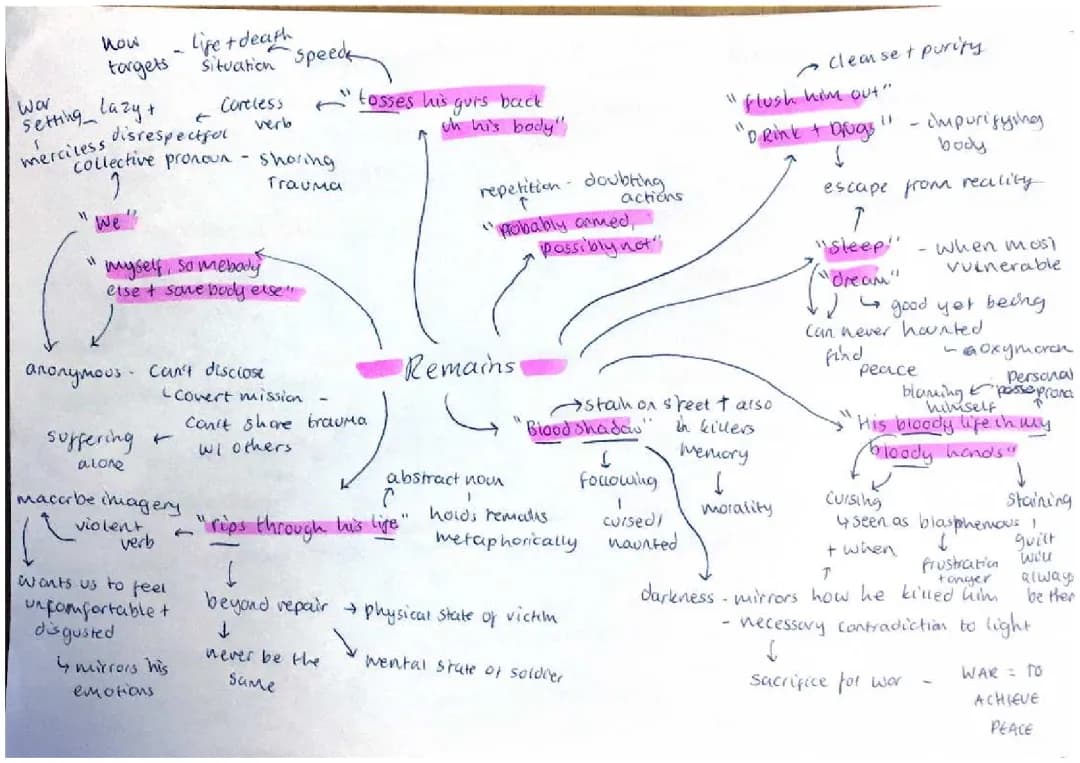 how targets - life + death situation
speed
"tosses his guts back
in his body"
careless verb
lazy + disrespectful
war setting - merciless
collective pronoun - sharing
trauma
"We"
"myself, somebody
else + somebody else"
anonymous - can't disclose
covert mission -
can't share trauma
w/ others
suffering
alone
repetition - doubting
actions
"probably armed,
possibly not"
cleanse + purify
"flush him out"
"Drink + Drugs" - impurifying
body
escape from reality
"sleep" - when most
vulnerable
"dream"
good yet being
haunted
oxymoron
can never
find
peace
Remains
"Blood shadow"
stain on street + also
in killers
memory
morality
following
cursed/
haunted
darkness - mirrors how he killed him
- necessary contradiction to light
sacrifice for war - WAR = TO
ACHIEVE
PEACE
personal
blaming
himself
"His bloody life in my
bloody hands"
cursing
seen as blasphemous
+ when
frustration
+ anger
staining
guilt
will
always
be ther
"rips through his life"
abstract noun
holds remains
metaphorically
violent
verb
macarbe imagery
wants us to feel
unfomfortable +
disgusted
mirrors his
emotions
beyond repair → physical state of victim
mental state of soldier
never be the
same